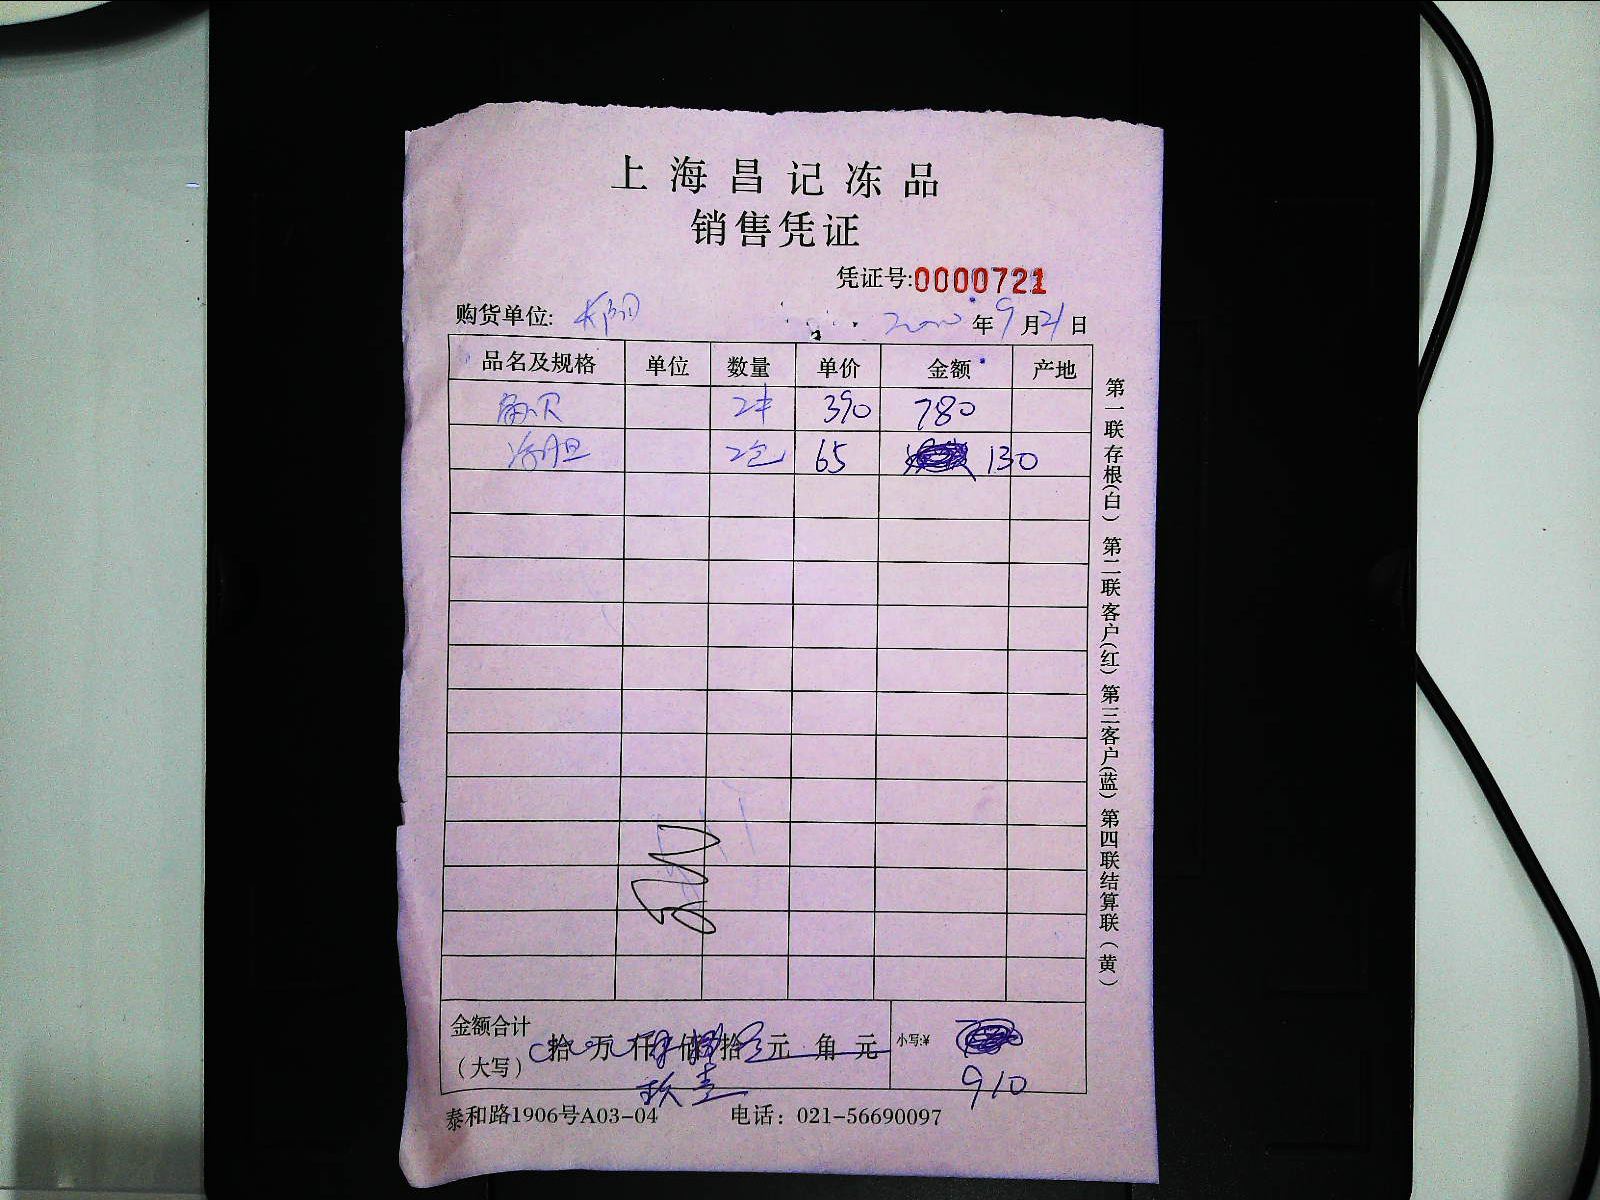 上海昌记冻品
销售凭证
凭证号:0000721
购货单位: 年9月21日
品名及规格 单位 数量 单价 金额 产地
390 780
2包 65 130
金额合计
（大写） 拾 万 仟 佰 拾 元 角 元 小写:¥
玖 壹 910
泰和路1906号A03-04 电话：021-56690097
第一联存根(白) 第二联客户(红) 第三客户(蓝) 第四联结算联(黄)